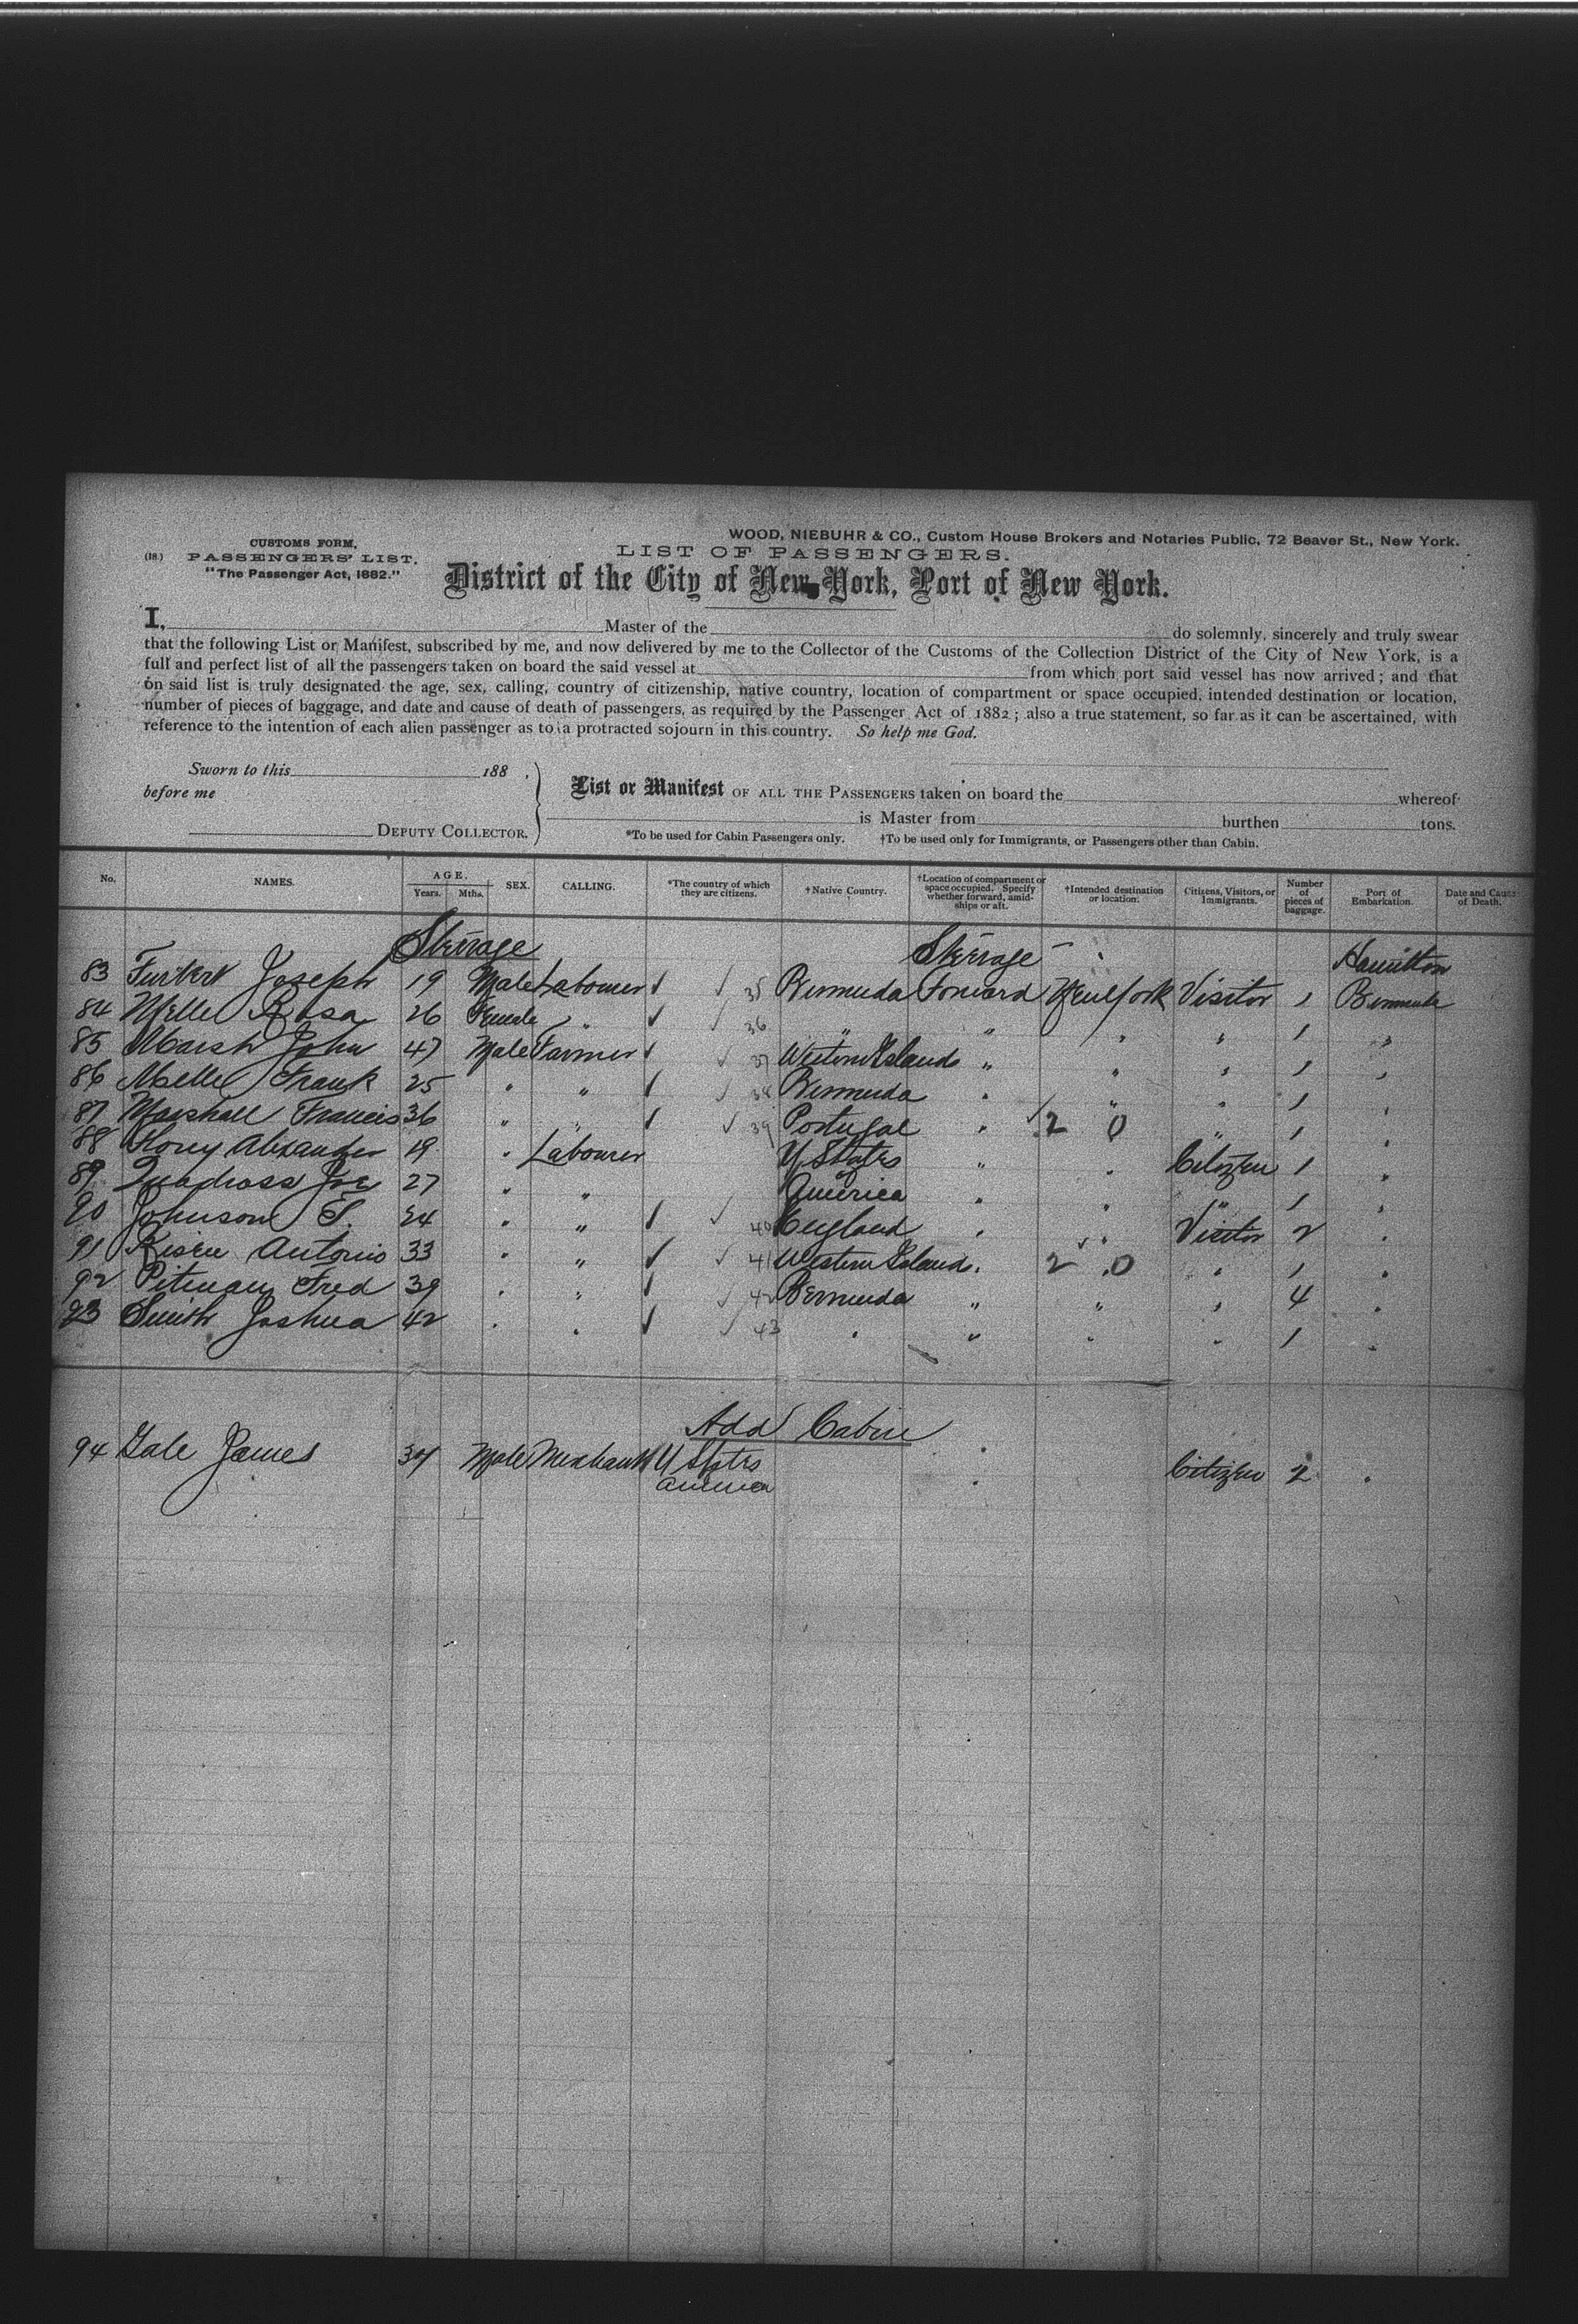 WOOD, NIEBUHR & CO., Custom House Brokers and Notaries Public, 72 Beaver St., New York.
(18.) CUSTOMS FORM,
PASSENGERS' LIST.
"The Passenger Act, 1882."
LIST OF PASSENGERS.
District of the City of New York, Port of New York.
I, Master of the do solemnly, sincerely and truly swear
that the following List or Manifest, subscribed by me, and now delivered by me to the Collector of the Customs of the Collection District of the City of New York, is a
full and perfect list of all the passengers taken on board the said vessel at from which port said vessel has now arrived; and that
on said list is truly designated the age, sex, calling, country of citizenship, native country, location of compartment or space occupied, intended destination or location,
number of pieces of baggage, and date and cause of death of passengers, as required by the Passenger Act of 1882; also a true statement, so far as it can be ascertained, with
reference to the intention of each alien passenger as to a protracted sojourn in this country. So help me God.
Sworn to this 188 .
before me
DEPUTY COLLECTOR.
List or Manifest OF ALL THE PASSENGERS taken on board the whereof
is Master from burthen tons.
*To be used for Cabin Passengers only. †To be used only for Immigrants, or Passengers other than Cabin.
No. NAMES. AGE. Years. Mths. SEX. CALLING. *The country of which they are citizens. †Native Country. †Location of compartment or space occupied. Specify whether forward, amidships or aft. †Intended destination or location. Citizens, Visitors, or Immigrants. Number of pieces of baggage. Port of Embarkation. Date and Cause of Death.
Sterrage Sterrage Hamilton
83 Furkert Joseph 19 Male Labourer ✓ ✓ 35 Bermuda Forward New York Visitor 1 Bermuda
84 Mellel Rosa 26 Female " ✓ ✓ 36 " " " " 1 "
85 Marsh John 47 Male Farmer ✓ ✓ 37 Western Islands " " " 1 "
86 Mellel Frank 25 " " ✓ ✓ 38 Bermuda " " " 1 "
87 Marshall Francis 36 " " ✓ ✓ 39 Portugal " 2 0 " 1 "
88 Alexander 19 " Labourer U States " " Citizen 1 "
89 Joe 27 " " America " " " 1 "
90 Johnson S. 24 " " ✓ ✓ 40 England " " Visitor 2 "
91 Antonio 33 " " ✓ ✓ 41 Western Island " 2 0 " 1 "
92 Pitman Fred 39 " " ✓ ✓ 42 Bermuda " " " 4 "
93 Smith Joshua 42 " " ✓ ✓ 43 " " " " 1 "
Add Cabin
94 Gale James 34 Male Merchant U States " Citizen 2 "
America